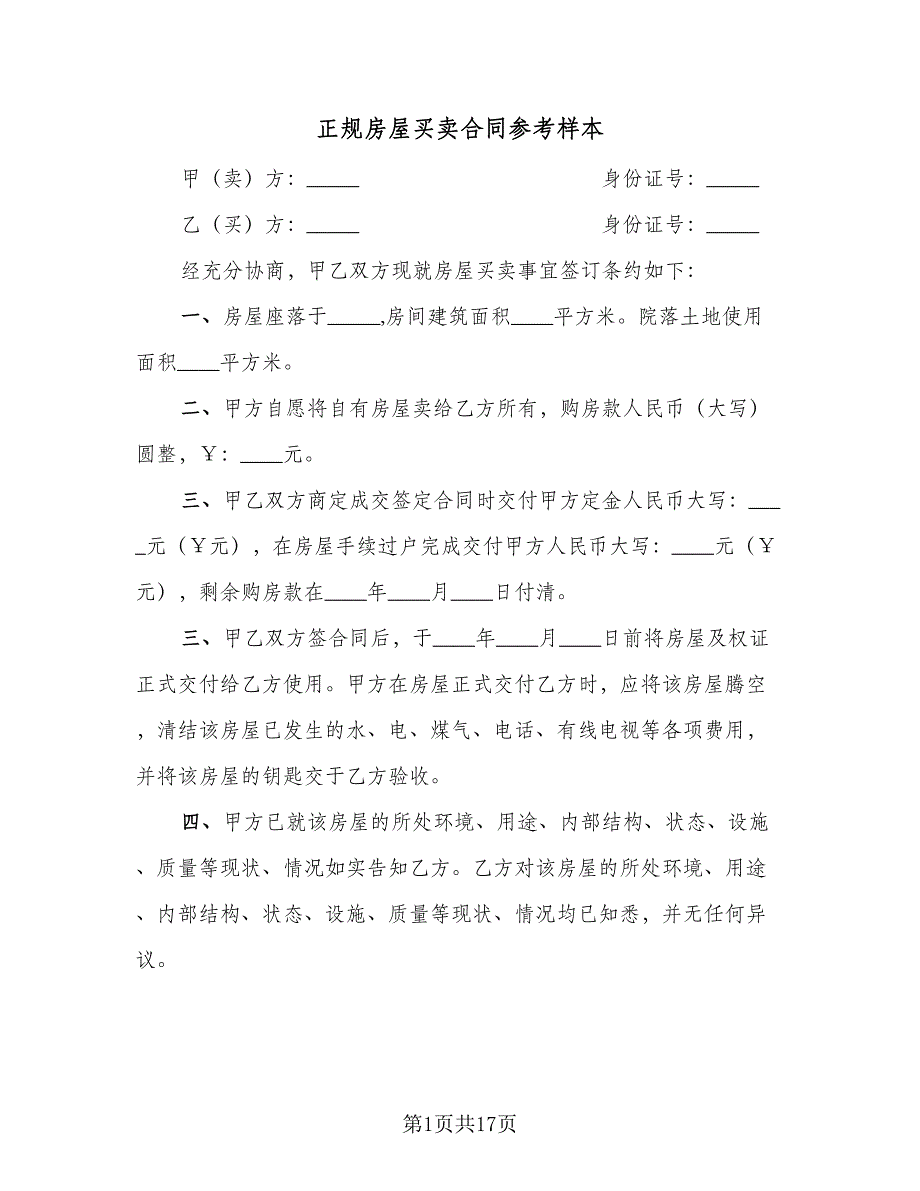 正规房屋买卖合同参考样本
甲（卖）方：_____ 身份证号：_____
乙（买）方：_____ 身份证号：_____
经充分协商，甲乙双方现就房屋买卖事宜签订条约如下：
一、房屋座落于_____,房间建筑面积____平方米。院落土地使用
面积____平方米。
二、甲方自愿将自有房屋卖给乙方所有，购房款人民币（大写）
圆整，￥：____元。
三、甲乙双方商定成交签定合同时交付甲方定金人民币大写：___
_元（￥元），在房屋手续过户完成交付甲方人民币大写：____元（￥
元），剩余购房款在____年____月____日付清。
三、甲乙双方签合同后，于____年____月____日前将房屋及权证
正式交付给乙方使用。甲方在房屋正式交付乙方时，应将该房屋腾空
，清结该房屋已发生的水、电、煤气、电话、有线电视等各项费用，
并将该房屋的钥匙交于乙方验收。
四、甲方已就该房屋的所处环境、用途、内部结构、状态、设施
、质量等现状、情况如实告知乙方。乙方对该房屋的所处环境、用途
、内部结构、状态、设施、质量等现状、情况均已知悉，并无任何异
议。
第1页共17页